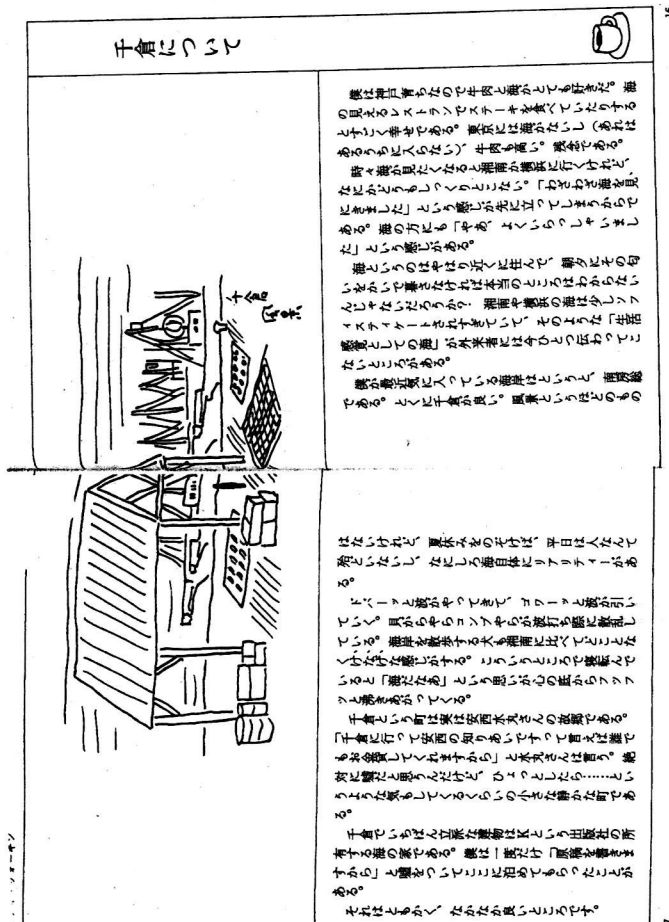 千倉について
僕は神戸育ちなので牛肉と海がとても好きだ。海
の見えるレストランでステーキを食べていたりする
とすごく幸せである。東京には海がないし(あれは
あるうちに入らない)、牛肉も高い。残念である。
時々海が見たくなると湘南か横浜に行くけれど、
なにかどうもしっくりとこない。「わざわざ海を見
にきました」という感じが先に立ってしまうからで
ある。海の方にも「やあ、よくいらっしゃいまし
た」という感じがある。
海というのはやはり近くに住んで、朝夕にその匂
いをかいで暮さなければ本当のところはわからない
んじゃないだろうか? 湘南や横浜の海は少しソフ
ィスティケートされすぎていて、そのような「生活
感覚としての海」が外来者には今ひとつ伝わってこ
ないところがある。
僕が最近気に入っている海岸はというと、南房総
である。とくに千倉が良い。風景というほどのもの
はないけれど、夏休みをのぞけば、平日は人なんて
殆どいないし、なにしろ海自体にリアリティーがあ
る。
ドバーッと波がやってきて、ゴワーッと波が引い
ていく。貝がらやらコンブやらが波打ち際に散乱し
ている。海岸を散歩する犬も湘南に比べてどことな
くけなげな感じがする。こういうところで寝転んで
いると「海だなあ」という思いが心の底からフッフ
ッと沸きあがってくる。
千倉という町は実は安西水丸さんの故郷である。
「千倉に行って安西の知りあいですって言えば誰で
もお金貸してくれますから」と水丸さんは言う。絶
対に嘘だと思うんだけど、ひょっとしたら……とい
うような気もしてくるくらいの小さな静かな町であ
る。
千倉でいちばん立派な建物はKという出版社の所
有する海の家である。僕は一度だけ「原稿を書きま
すから」と嘘をついてここに泊めてもらったことが
ある。
それはともかく、なかなか良いところです。
千倉
風景